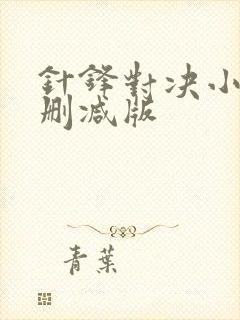 針鋒對决小
删减版
青葉